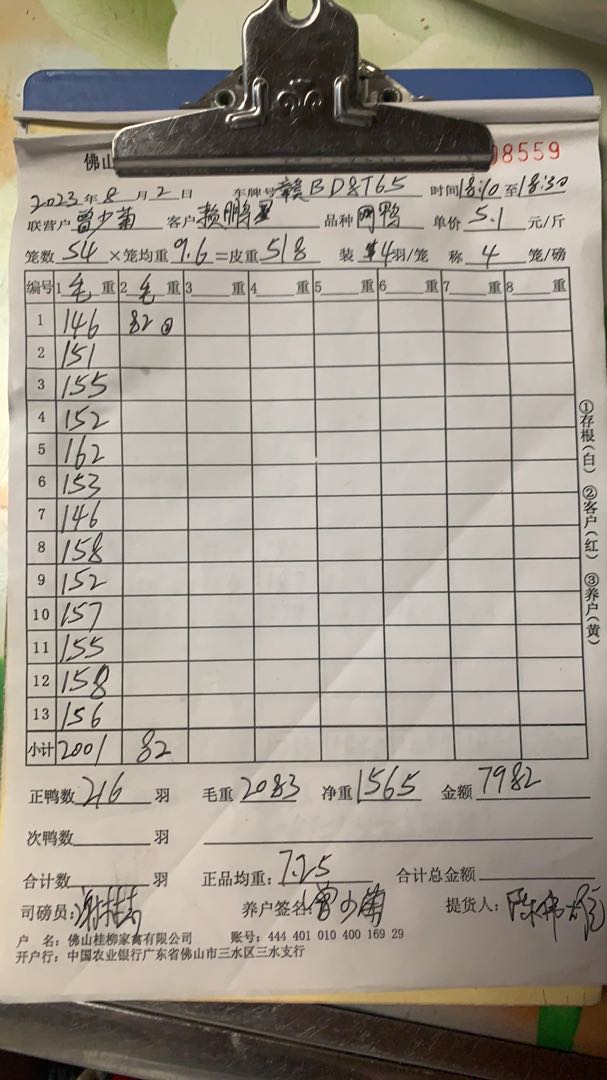 佛山
08559
2023年8月2日 车牌号 赣BD8T65 时间18:10至18:30
联营户 曾少菊 客户 赖鹏 品种 网鸭 单价 5.1 元/斤
笼数 54 ×笼均重 9.6 =皮重 518 装 4羽/笼 称 4 笼/磅
编号 1 毛 重 2 毛 重 3 重 4 重 5 重 6 重 7 重 8 重
1 146 82 ②
2 151
3 155
4 152
5 162
6 153
7 146
8 158
9 152
10 157
11 155
12 158
13 156
小计 2001 82
正鸭数 216 羽 毛重 2083 净重 1565 金额 7982
次鸭数 羽
合计数 羽 正品均重: 7.25 合计总金额
司磅员: 养户签名: 曾少菊 提货人:
户 名: 佛山桂柳家禽有限公司 账号: 444 401 010 400 169 29
开户行: 中国农业银行广东省佛山市三水区三水支行
①存根(白) ②客户(红) ③养户(黄)